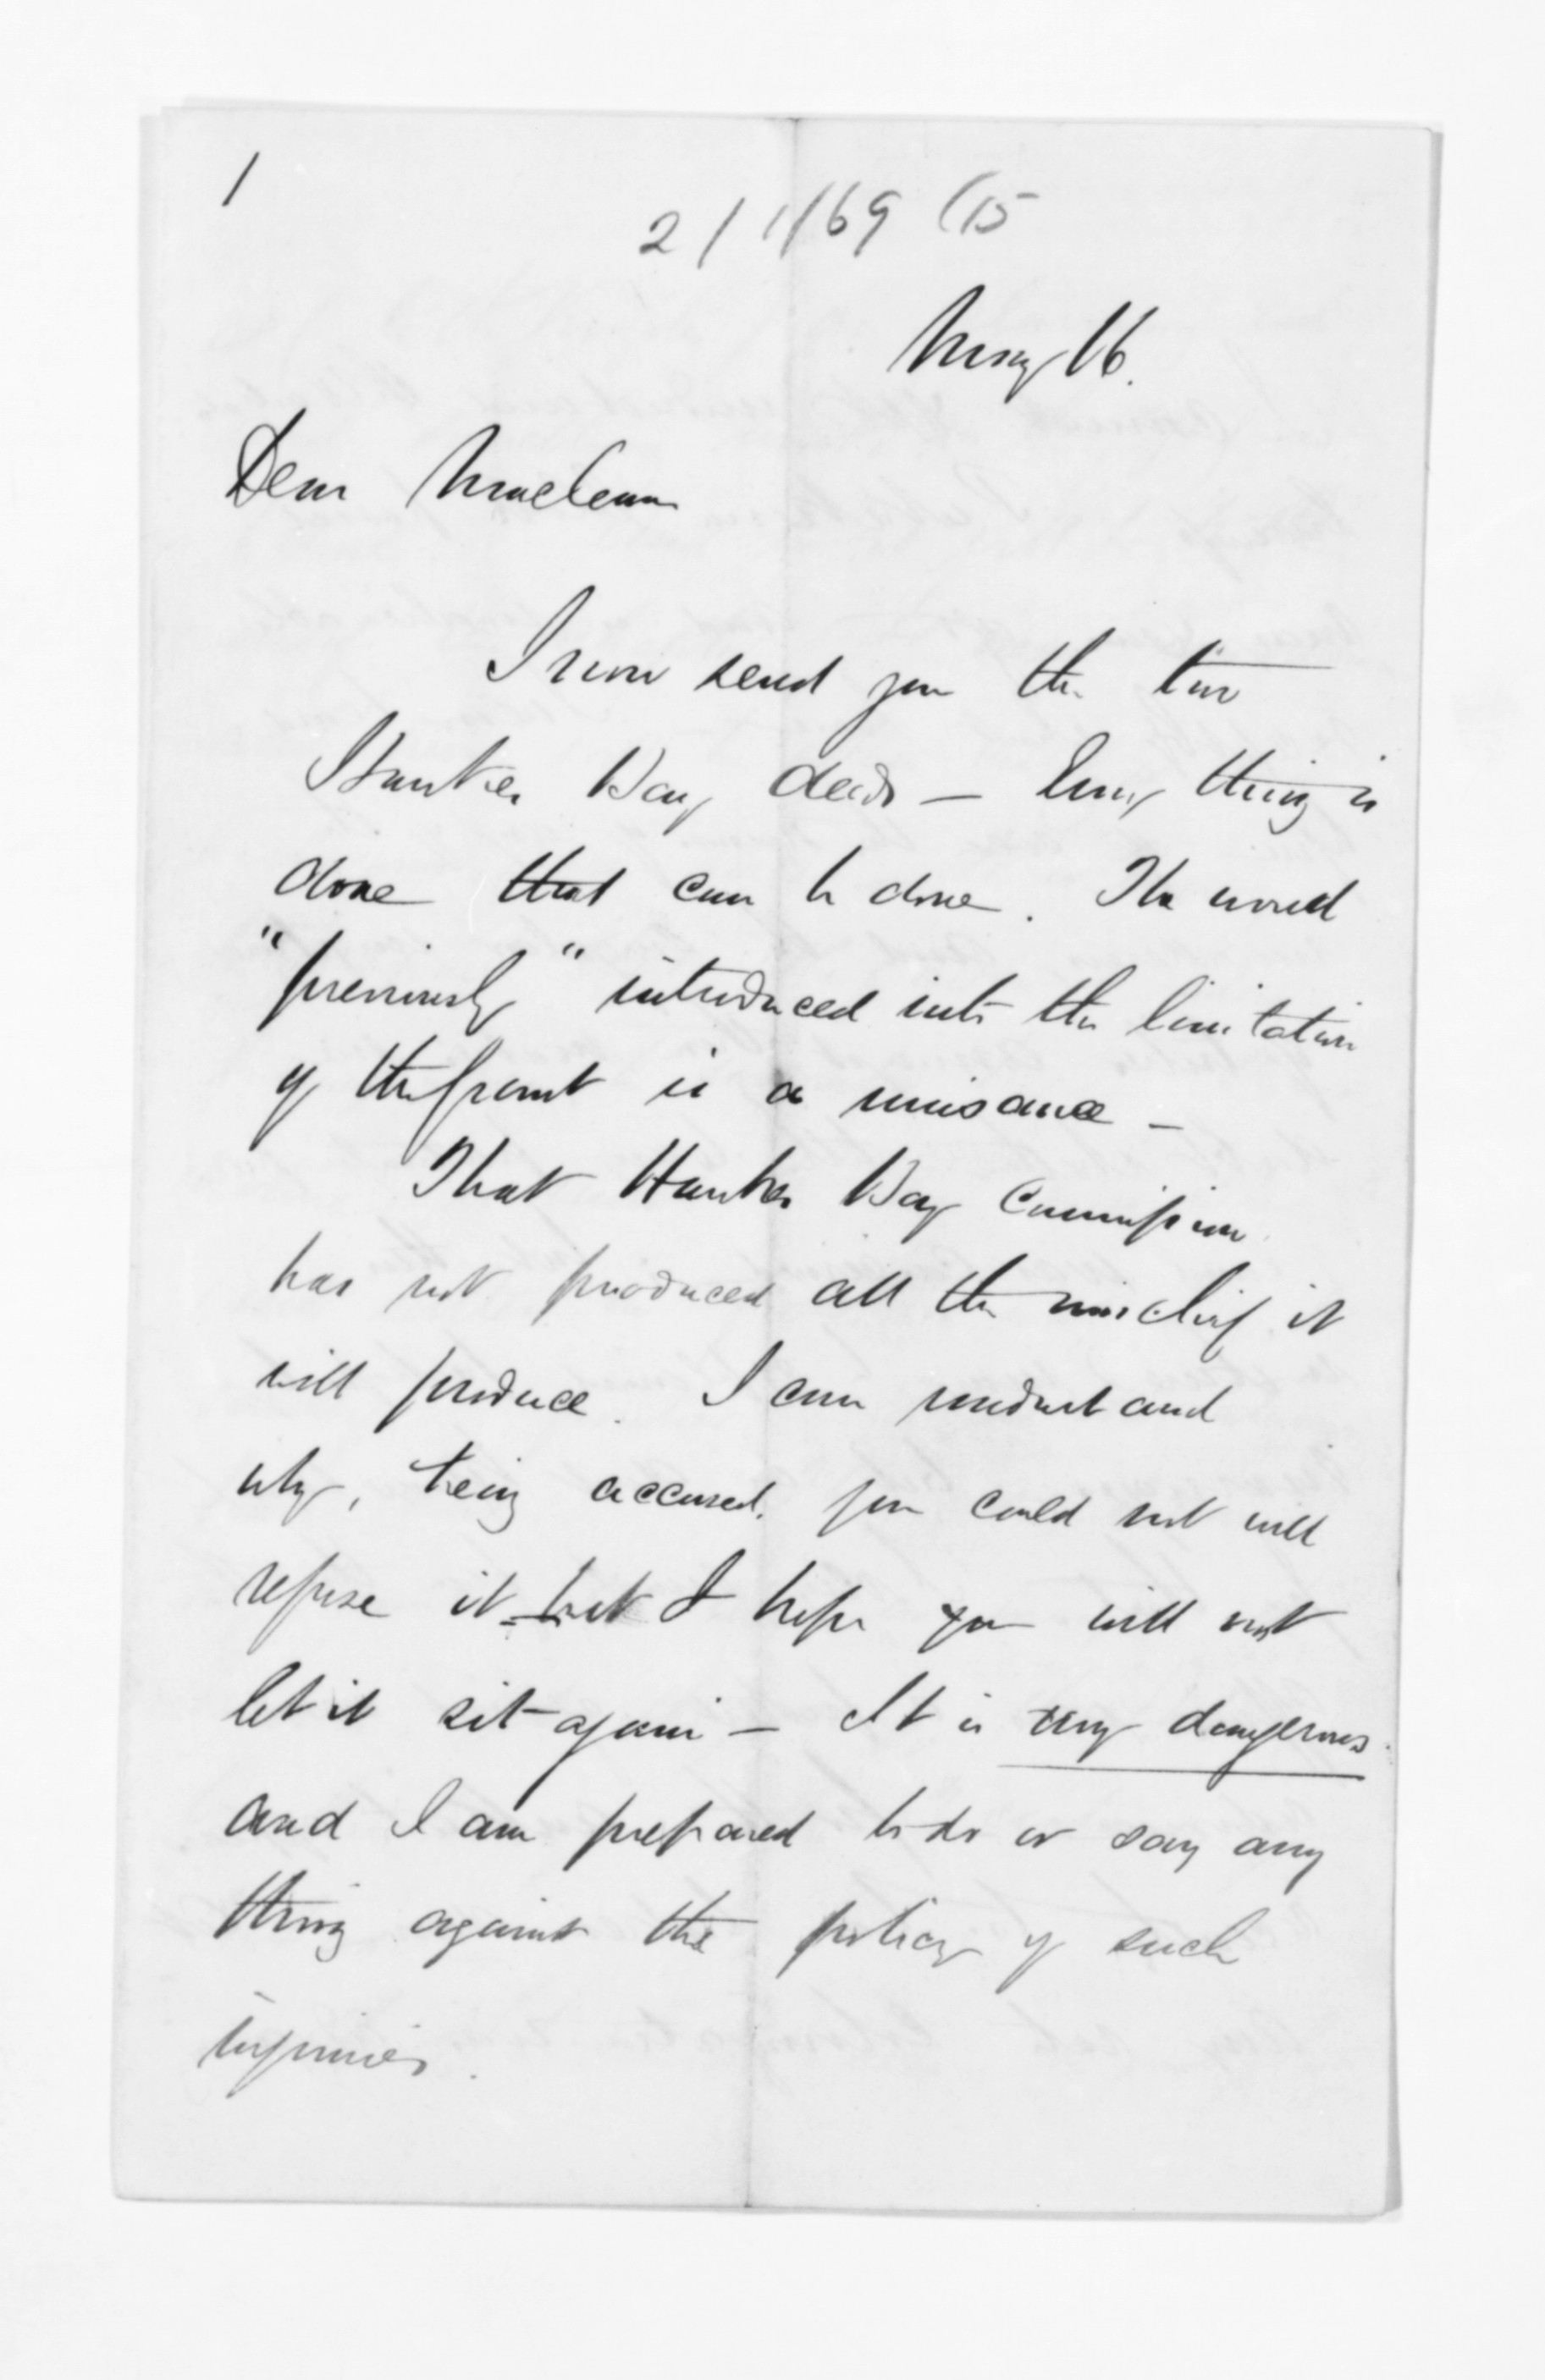 1
2/1/69 (15
May 16.
Dear Maclean
I now send you the two
Hawkes Bay deeds — Every thing is
done that can be done. The word
"previously" introduced into the limitation
of the grant is a nuisance —
That Hawkes Bay Commission
has not produced all the mischief it
will produce. I can understand
why, being accused, you could not well
refuse it - but I hope you will not
let it sit again — It is very dangerous
and I am prepared to do or say any
thing against the policy of such
inquiries.